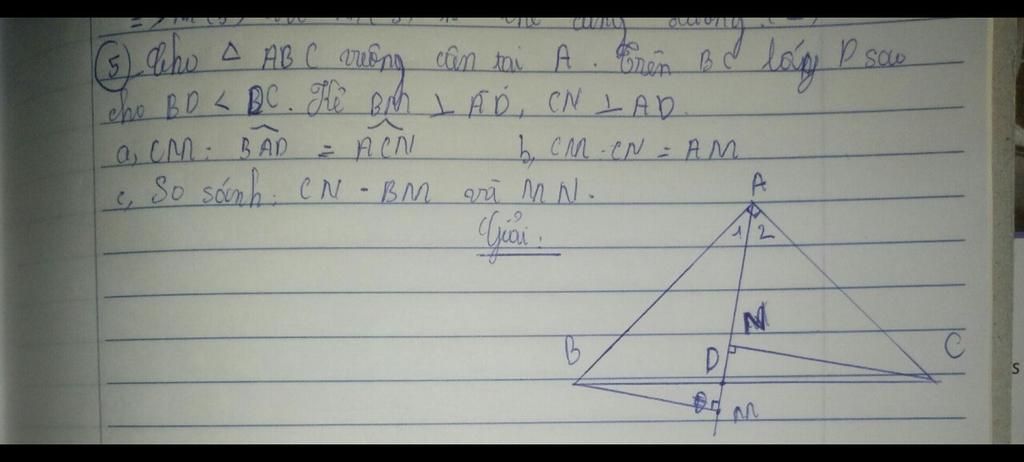 ⑤ Cho △ ABC vuông cân tại A. Trên BC lấy D sao
cho BD < DC. Kẻ BM ⊥ AD, CN ⊥ AD.
a, CM: BAD = ACN b, CM: CN = AM
c, So sánh: CN - BM và MN.
Giải:
A
1 2
N
B
D
C
M
s